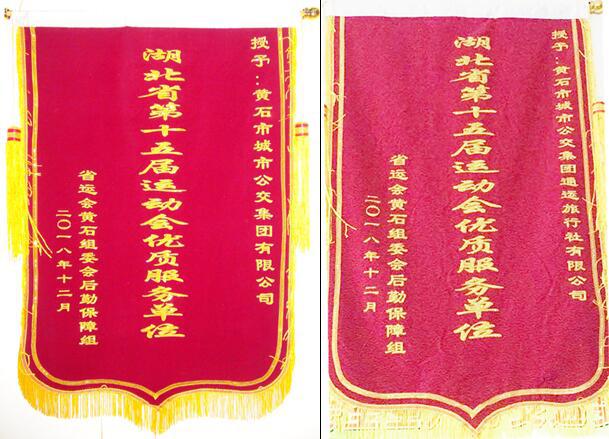 授予：黄石市城市公交集团有限公司
湖北省第十五届运动会优质服务单位
省运会黄石组委会后勤保障组
二〇一八年十二月
授予：黄石市城市公交集团通运旅行社有限公司
湖北省第十五届运动会优质服务单位
省运会黄石组委会后勤保障组
二〇一八年十二月